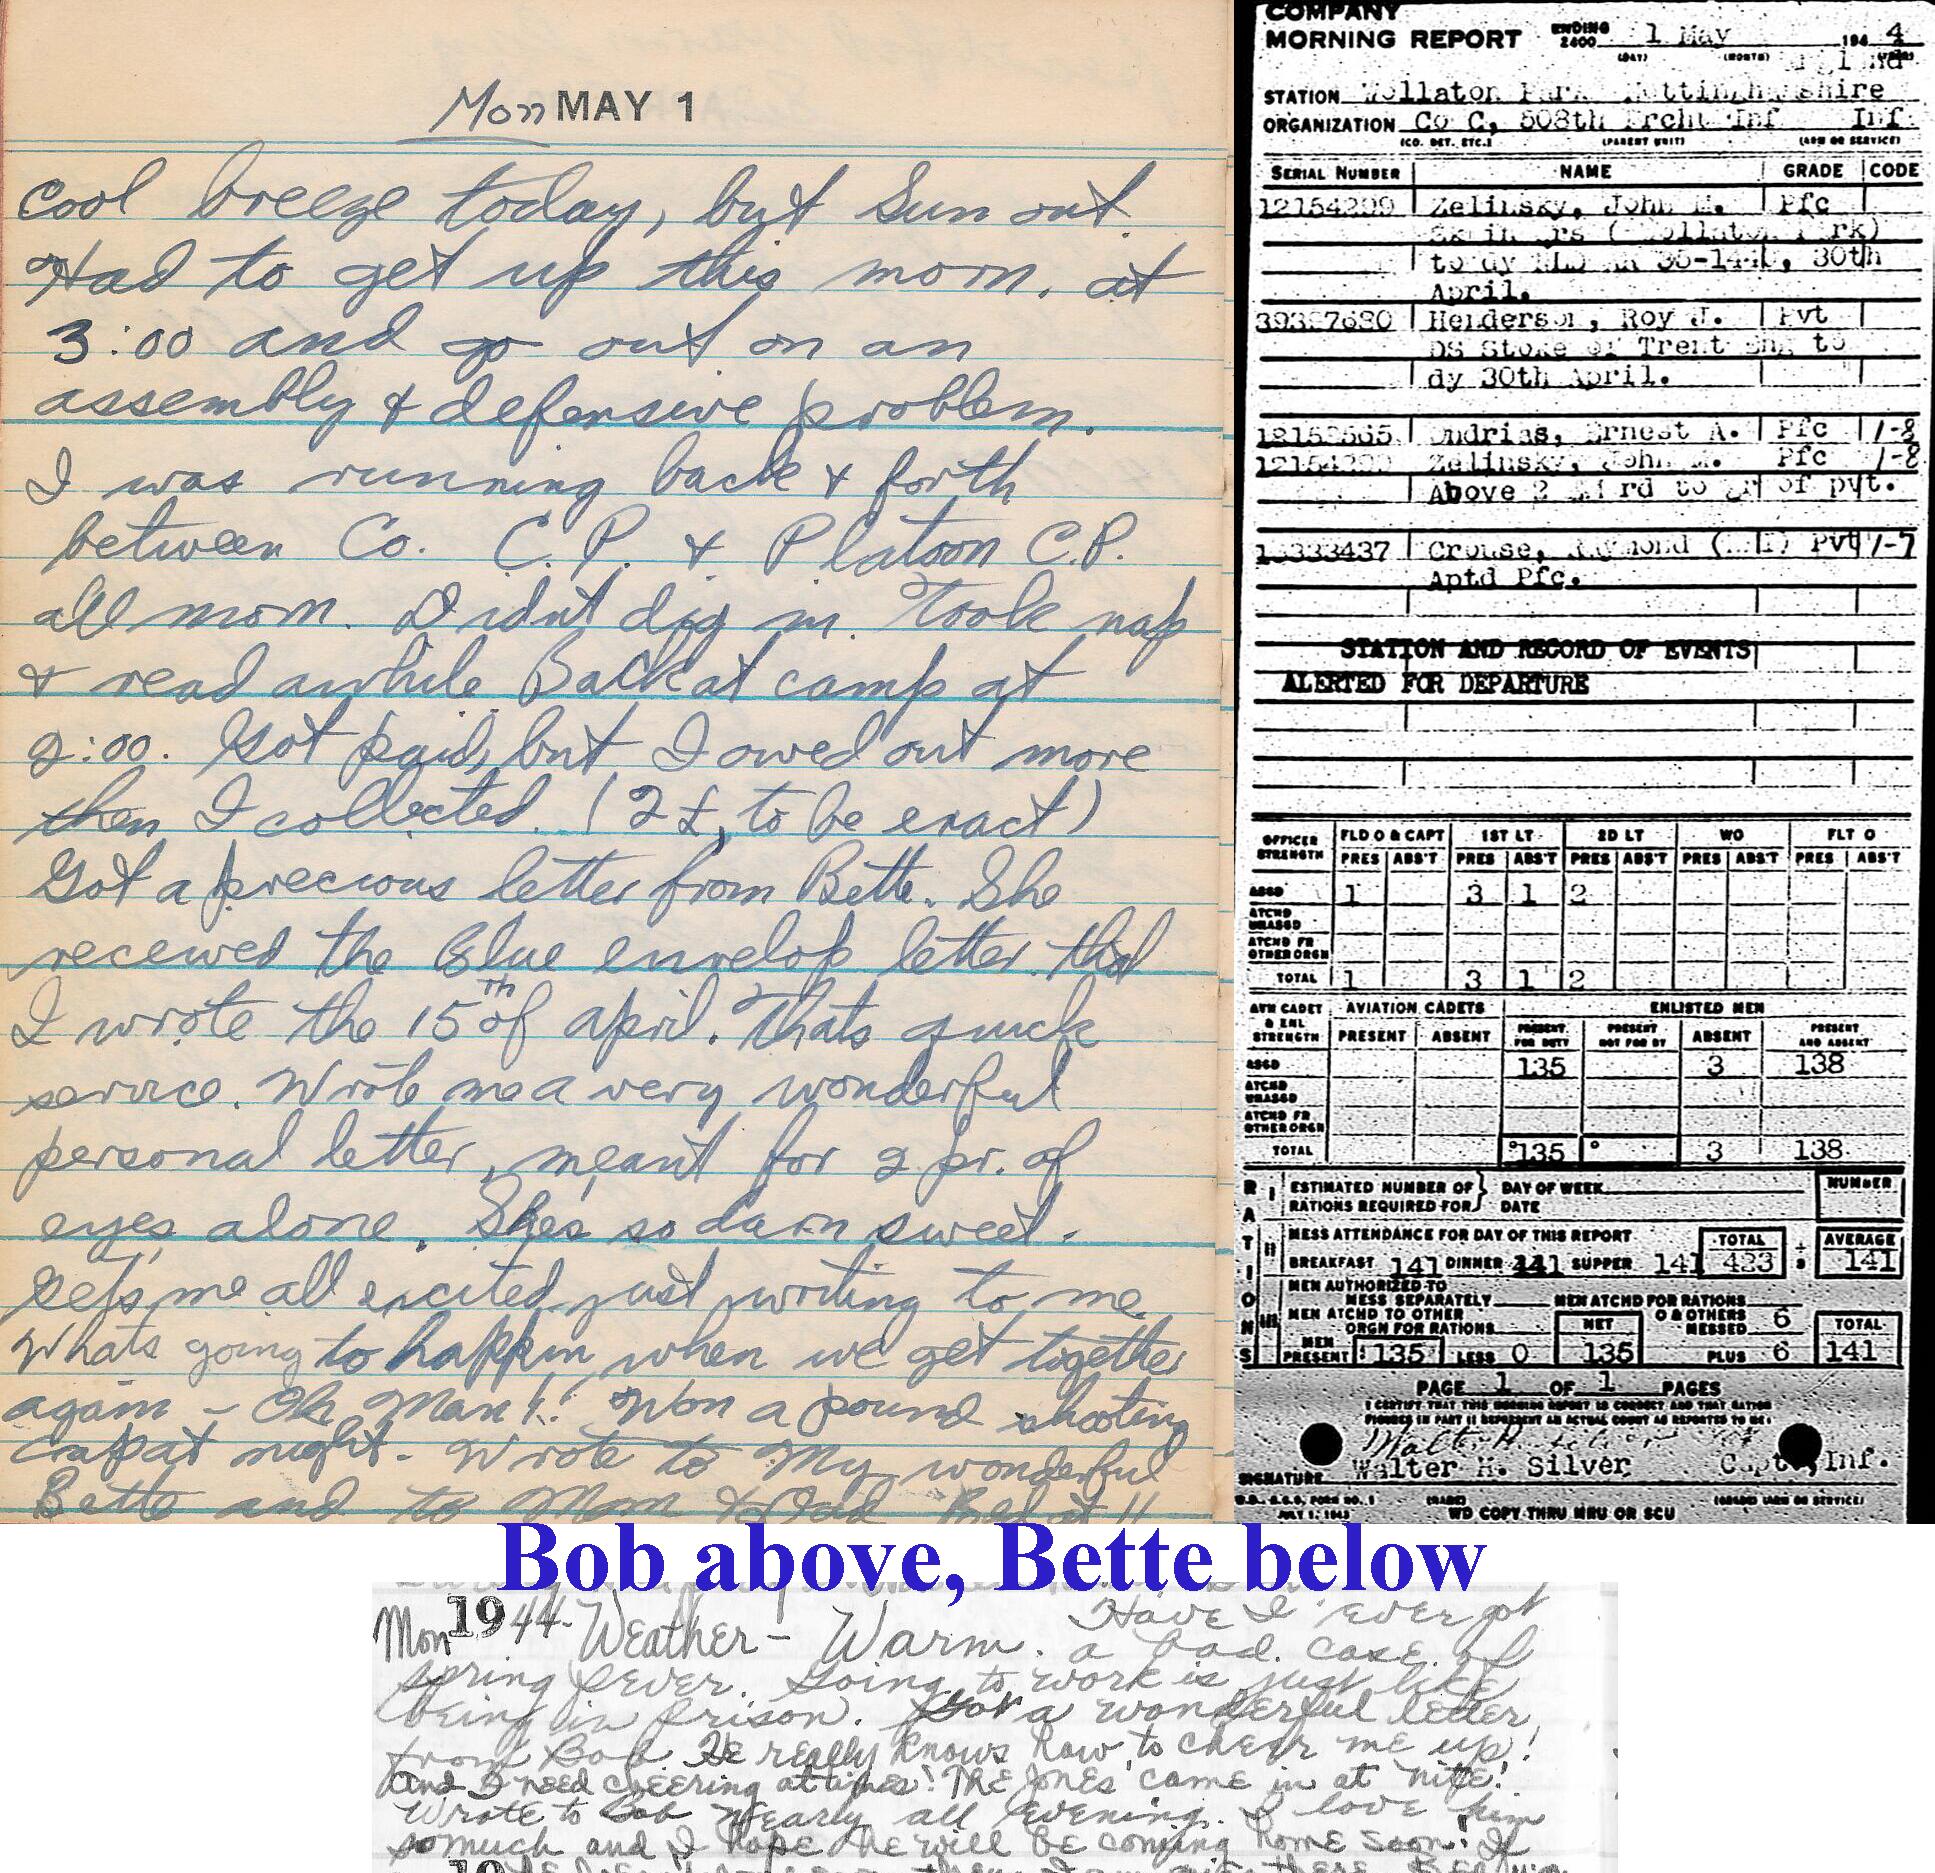 Mon MAY 1
cool breeze today, but Sun out.
Had to get up this morn. at
3:00 and go out on an
assembly & defensive problem.
I was running back & forth
between Co. C.P. & Platoon C.P.
all morn. Didn't dig in. Took nap
& read awhile. Back at camp at
2:00. Got paid, but I owed out more
then I collected. (2£, to be exact)
Got a precious letter from Bette. She
received the Blue envelop letter that
I wrote the 15th of april. Thats quick
service. Wrote me a very wonderful
personal letter, meant for 2 pr. of
eyes, alone. She's so darn sweet.
Gets me all excited just writing to me.
Whats going to happen when we get together
again - Oh Man!! Won a pound shooting
crap at night. Wrote to My wonderful
Bette and to Mom & Dad. Bed at 11
COMPANY
MORNING REPORT ENDING 2400 1 May 1944
(DAY) (MONTH)
STATION Wollaton Park Nottinghamshire
ORGANIZATION Co C, 508th Prcht Inf Inf
(CO. DET. ETC.) (PARENT UNIT) (ARM OR SERVICE)
SERIAL NUMBER NAME GRADE CODE
12154299 Zelinsky, John M. Pfc
(Wollaton Park)
to dy 30th
April.
Henderson, Roy J. Pvt
DS Stoke of Trent Eng to
dy 30th April.
Ondrias, Ernest A. Pfc 1-8
Zelinsky, John M. Pfc 1-8
Above 2 of pvt.
Crouse, Raymond Pvt 1-7
Aptd Pfc.
STATION AND RECORD OF EVENTS
ALERTED FOR DEPARTURE
OFFICER STRENGTH FLD O & CAPT 1ST LT 2D LT WO FLT O
PRES ABS'T PRES ABS'T PRES ABS'T PRES ABS'T PRES ABS'T
ASGD 1 3 1 2
ATCHD UNASGD
ATCHD FR OTHER ORGN
TOTAL 1 3 1 2
AVN CADET & ENL STRENGTH AVIATION CADETS ENLISTED MEN
PRESENT ABSENT PRESENT FOR DUTY PRESENT NOT FOR DY ABSENT PRESENT AND ABSENT
ASGD 135 3 138
ATCHD UNASGD
ATCHD FR OTHER ORGN
TOTAL 135 3 138
RATIONS
I ESTIMATED NUMBER OF RATIONS REQUIRED FOR DAY OF WEEK DATE NUMBER
II MESS ATTENDANCE FOR DAY OF THIS REPORT TOTAL AVERAGE
BREAKFAST 141 DINNER 141 SUPPER 141 423 ÷ 3 141
III MEN AUTHORIZED TO MESS SEPARATELY MEN ATCHD FOR RATIONS
MEN ATCHD TO OTHER ORGN FOR RATIONS NET & OTHERS MESSED 6 TOTAL
MEN PRESENT 135 LESS 0 135 PLUS 6 141
PAGE 1 OF 1 PAGES
I CERTIFY THAT THIS MORNING REPORT IS CORRECT AND THAT RATION
FIGURES IN PART II REPRESENT AN ACTUAL COUNT AS REPORTED TO ME:
Walter H. Silver
SIGNATURE Walter H. Silver Capt, Inf.
W.D., A.G.O. FORM NO. 1 (NAME) (GRADE) (ARM OR SERVICE)
JULY 1, 1943 WD COPY THRU MRU OR SCU
Bob above, Bette below
Mon 1944- Weather - Warm. Have I ever got
a bad case of
spring fever. Going to work is just like
being in prison. Got a wonderful letter
from Bob. He really knows how to cheer me up!
And I need cheering at times! The Jones' came in at nite!
Wrote to Bob nearly all evening. I love him
so much and I hope he will be coming home soon! If
19